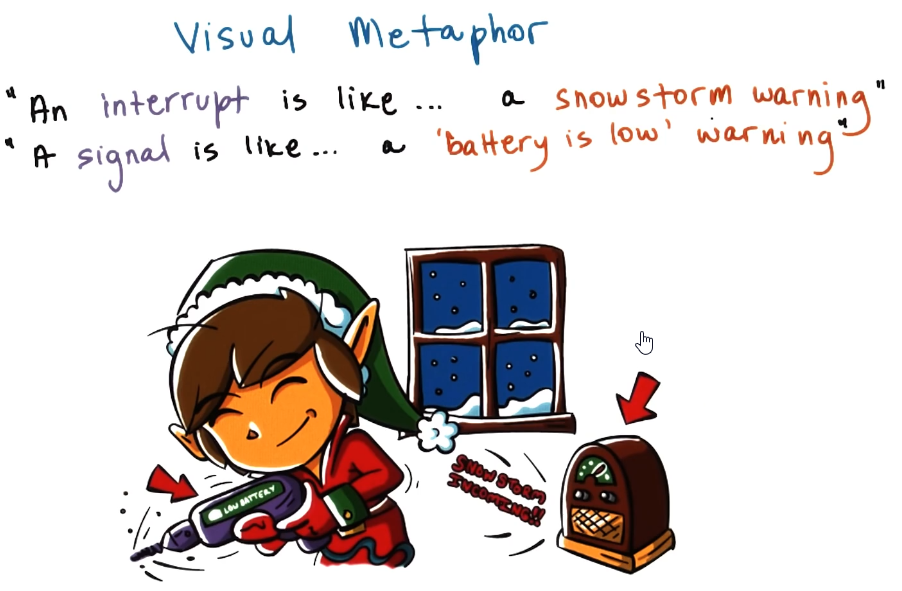 Visual Metaphor
"An interrupt is like... a snowstorm warning"
"A signal is like... a 'battery is low' warning"
SNOWSTORM
INCOMING!!
LOW BATTERY